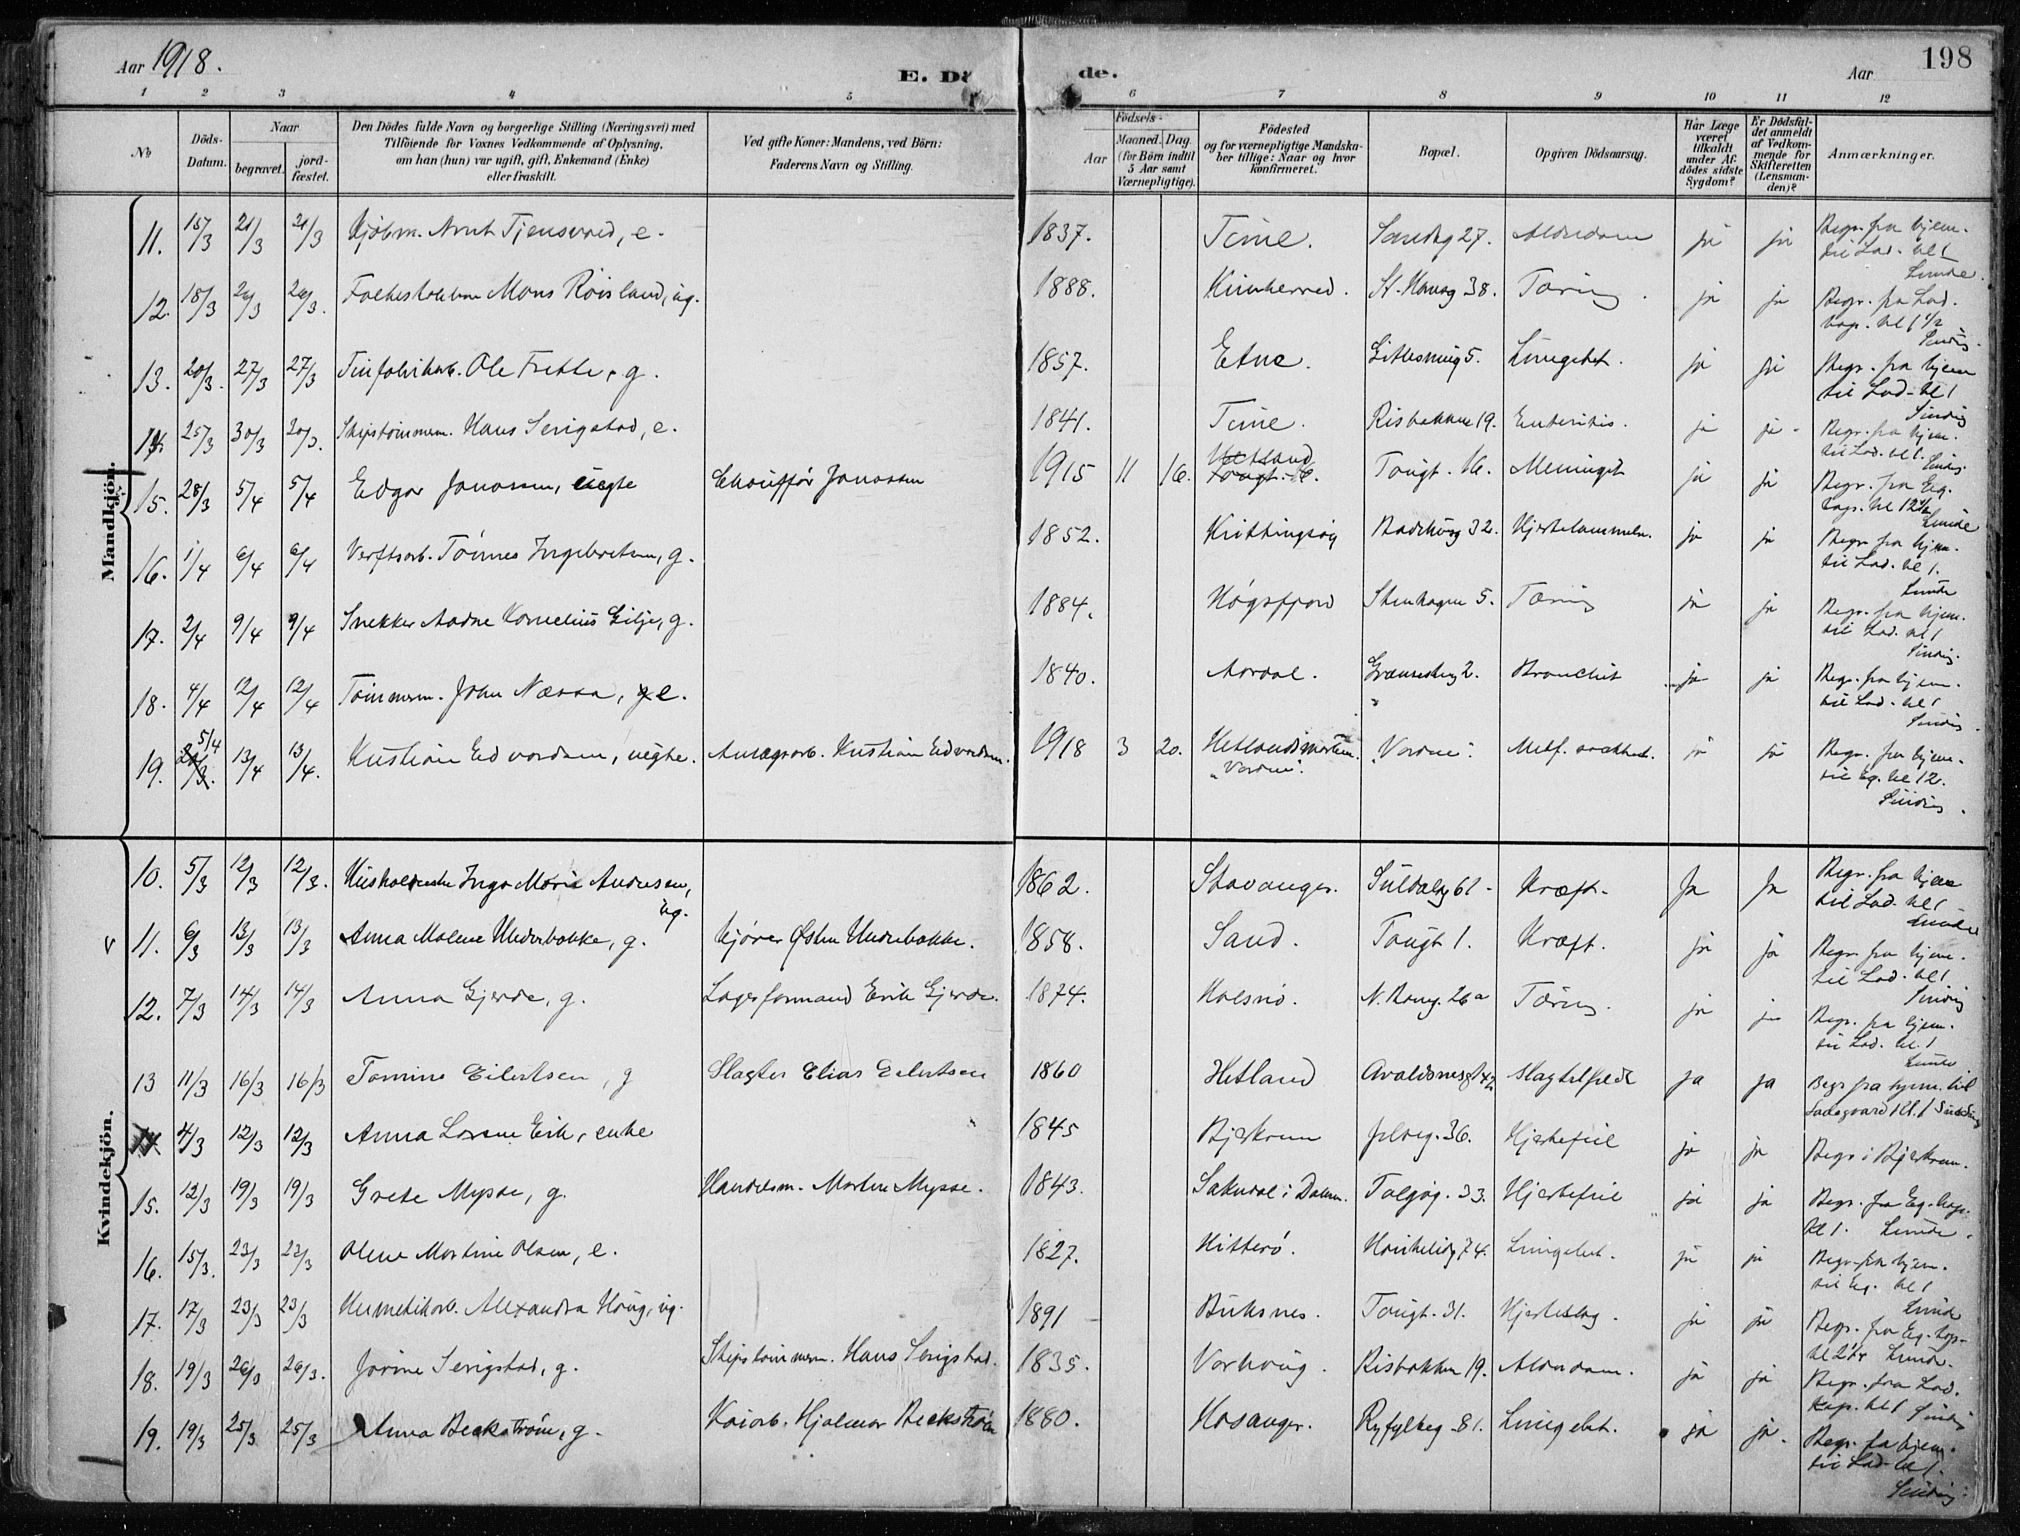 Aar 1918.
E. Dø
de.
Aar
198
1 2 3 4 5 6 7 8 9 10 11 12
No
Döds-Datum.
Naar
begravet.
jord-fæstet.
Den Dödes fulde Navn og borgerlige Stilling (Næringsvei) med
Tilföiende for Voxnes Vedkommende af Oplysning,
om han (hun) var ugift, gift, Enkemand (Enke)
eller fraskilt.
Ved gifte Koner: Mandens, ved Börn:
Faderens Navn og Stilling.
Födsels-
Aar
Maaned.
Dag.
(for Börn indtil
5 Aar samt
Værnepligtige).
Födested
og for værnepligtige Mandska-
ber tillige: Naar og hvor
konfirmeret.
Bopæl.
Opgiven Dödsaarsag.
Har Læge
været
tilkaldt
under Af-
dödes sidste
Sygdom?
Er Dödsfal-
det anmeldt
af Vedkom-
mende for
Skifteretten
(Lensman-
den)?
Anmærkninger.
Mandkjön.
11. 15/3 21/3 21/3 Kjøbm. Arnt Tjensvold, e. 1837. Time. Sandsg 27. Alderdom ja ja Begr. fra hjem. til Lad. kl 1 Lunde.
12. 18/3 26/3 26/3. Mons Röisland, ug. 1888. Kvinherred. St. Hansg 38. Tæring. ja ja Begr. fra Lad. kap. kl 1 1/2 Sinding.
13. 20/3. 27/3 27/3 Tinfabrikarb. Ole Frette, g. 1857. Etne. 5. Lungebet. ja ja Begr. fra hjem til Lad. kl 1 Sinding
14. 25/3 30/3 Skipstömmerm. Hans Serigstad, e. 1841. Time. Risbakken 19. Enteritis. ja ja - Begr. fra hjem. til Lad. kl 1. Sinding
15. 28/3 5/4 5/4 Edgar Jonassen, uegte Chauffør Jonassen 1915 11 16. Hetland Tougt. 16. Meningit ja ja Begr. fra Eg. kap. kl 12 1/2 Lunde
16. 1/4 6/4 6/4 Verftsarb. Tönnes Ingebretsen, g. 1852. Kvittingsøy Badehusg 32. Hjertelammelse. ja ja Begr. fra hjem. til Lad. kl 1. Lunde
17. 2/4 9/4 9/4 Snekker Aadne Kornelius Gilje, g. 1884. Høgsfjord Stenhagen 5. Tæring ja ja Begr. fra hjem. til Lad. kl 1 Sinding.
18. 4/4 12/4 12/4 Tömmerm. John Næssa, g e. 1840. Aardal. 2. Bronchit ja ja Begr. fra hjem. til Lad. kl 1 Sinding.
19. 5/4 13/4 13/4. Kristian Edvardsen, uegte. Anlægsarb. Kristian Edvardsen. 1918 3 20. Hetlandsmarken. "Varden". "Varden". Medf. svakhet. ja ja Begr. fra hjem. til Eg. kl 12. Sinding.
Kvindekjön.
10. 5/3 12/3 12/3. Husholderske Inga Marie Andersen, ug. 1862. Stavanger. Suldalsg 61 - Kræft. Ja Ja Begr. fra hjem til Lad. kl 1 Lunde
v 11. 6/3 13/3 13/3 Anna Malene Underbakke, g. Kjører Østen Underbakke. 1858. Sand. Tougt 1. Kræft. ja ja Begr. fra hjem. til Lad. kl 1. Sinding
12. 7/3 14/3 14/3 Anna Gjerde, g. Lagerformand Erik Gjerde. 1874. Halsnö. N. Bang. 26a Tæring. ja ja Begr. fra hjem. til Lad. kl. 1 Lunde
13 11/3 16/3 16/3 Tomine Eilertsen, g Slagter Elias Eilertsen 1860 Hetland Avaldsnesgt 42 Slagtilfelde ja ja Begr fra hjem. til Ladegaard kl. 1 Sinding
14 4/3 12/3 12/3 Anna Lovise Eik, enke 1845 Bjerkrem 36. Hjertefeil ja ja Begr i Bjerkrem.
15. 12/3 19/3 19/3 Grete Mysse, g. Handelsm. Martin Mysse. 1843. Sokndal i Dalene. Tolgøg. 33. Hjertefeil ja ja Begr. fra Eg. kap. kl 1. Lunde.
16. 15/3. 23/3 23/3 Olene Martine Olsen, e. 1827. Hitterö. Haukelidg 74. Lungebet. ja ja Begr. fra hjem. til Eg. kl 1 Lunde
17. 17/3 23/3 23/3 Hermetikarb. Alexandra Haug, ug. 1891 Buksnes. Tougt. 31. Hjerteslag. ja ja Begr. fra Eg. kap. kl 2 1/4 Lunde.
18. 19/3 26/3 26/3. Jorine Serigstad, g. Skipstömmerm. Hans Serigstad. 1835. Varhaug. Risbakken 19. Alderdom. ja ja Begr. fra Lad. kap. kl 1 Sinding
19. 19/3 25/3 25/3 Anna Beckström, g. Kaiarb. Hjalmar Beckström 1880. Hosanger. Ryfylkeg 81. Lungebet. ja ja. Begr. fra hjem. til Lad. kl 1. Sinding.